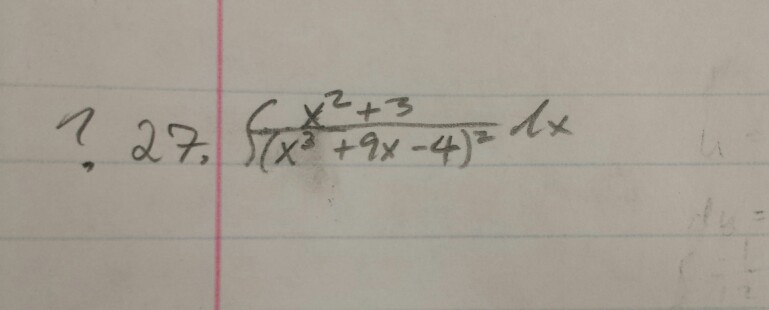 ? 27. ∫ (x² + 3)/(x³ + 9x - 4)² dx